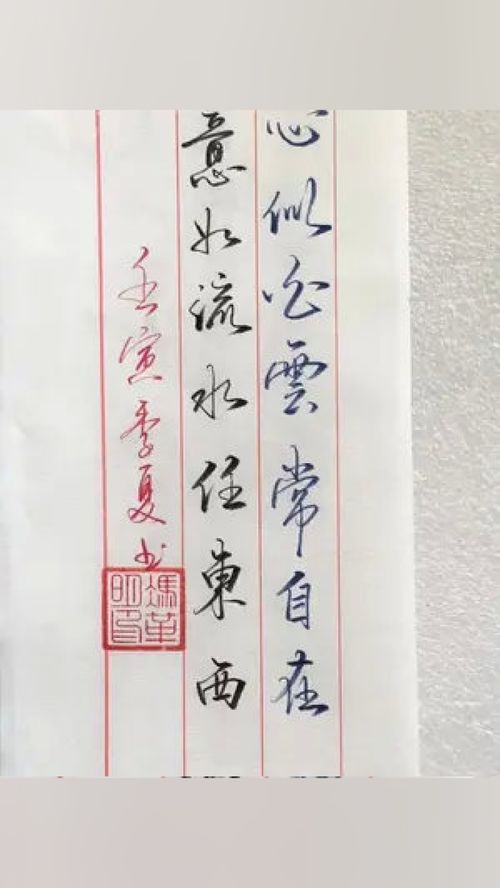 心似白雲常自在
意如流水任東西
壬寅季夏书
馮華明印